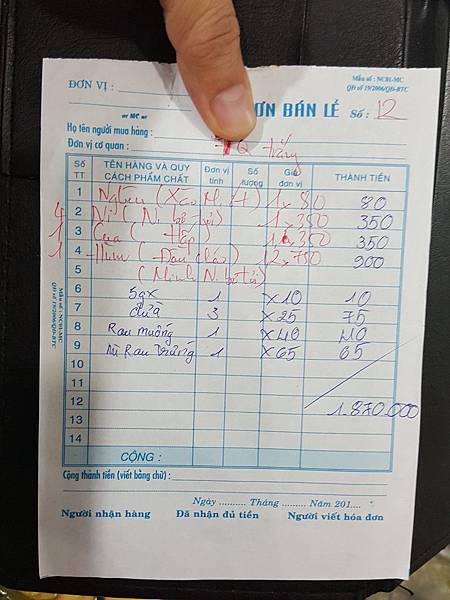 ĐƠN VỊ :
Mẫu số : NCH-MC
QĐ số 19/2006/QĐ-BTC
ĐƠN BÁN LẺ Số : 12
Họ tên người mua hàng :
Đơn vị cơ quan : trắng
Số TT TÊN HÀNG VÀ QUY CÁCH PHẨM CHẤT Đơn vị tính Số lượng Giá đơn vị THÀNH TIỀN
1 1 x 80 80
2 1 x 350 350
3 Cua ( Hấp ) 350 350
4 900
5
6 5 1 x 10 10
7 dừa 3 x 25 75
8 Rau muống 1 x 40 40
9 mì Rau trứng 1 x 65 65
10
11
12 1.870.000
13
14
CỘNG :
Cộng thành tiền (viết bằng chữ) :
Ngày .......... Tháng .......... Năm 201....
Người nhận hàng Đã nhận đủ tiền Người viết hóa đơn
Mẫu số : NCH-MC
QĐ số 19/2006/QĐ-BTC